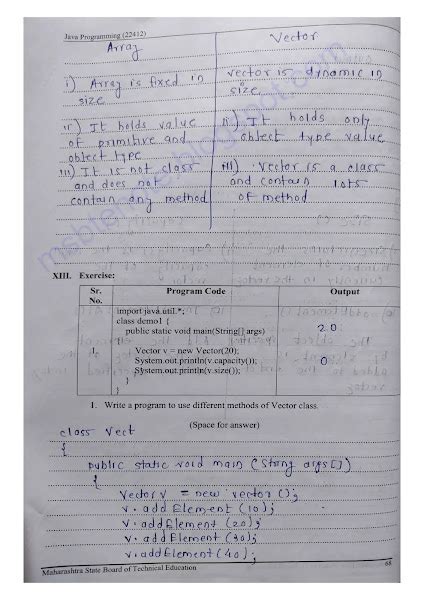 Java Programming (22412)
Array Vector
i) Array is fixed in vector is dynamic in
size size
ii) It holds value ii) It holds only
of primitive and object type value
object type
iii) It is not class iii) Vector is a class
and does not and contain lots
contain any method of method
msbtenote.blogspot.com
XIII. Exercise:
Sr. No. Program Code Output
import java.util.*;
class demo1 {
public static void main(String[] args)
{
1. Vector v = new Vector(20);
System.out.println(v.capacity()); 20
System.out.println(v.size()); 0
}
}
1. Write a program to use different methods of Vector class.
(Space for answer)
class Vect
{
public static void main (String args[])
{
Vector v = new vector();
v.addElement (10);
v.addElement (20);
v.addElement (30);
v.addElement (40);
Maharashtra State Board of Technical Education 68